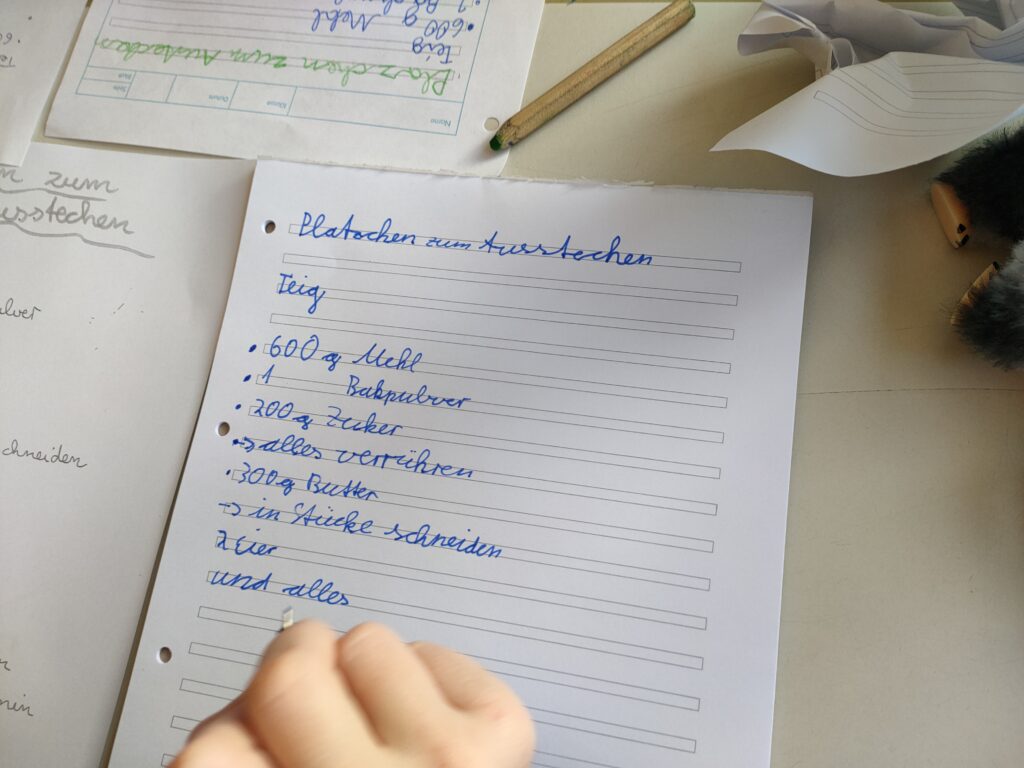 Platzchen zum Ausstechen
Teig
• 600 g Mehl
• 1 Bakpulver
• 200 g Zucker
• → alles verrühren
• 300 g Butter
→ in Stücke schneiden
2 Eier
und alles
zum
usstechen
ulver
chneiden
Name
Klasse
Datum
Blatt
Seite
Plazchen zum Ausstechen
Teig
• 600 g Mehl